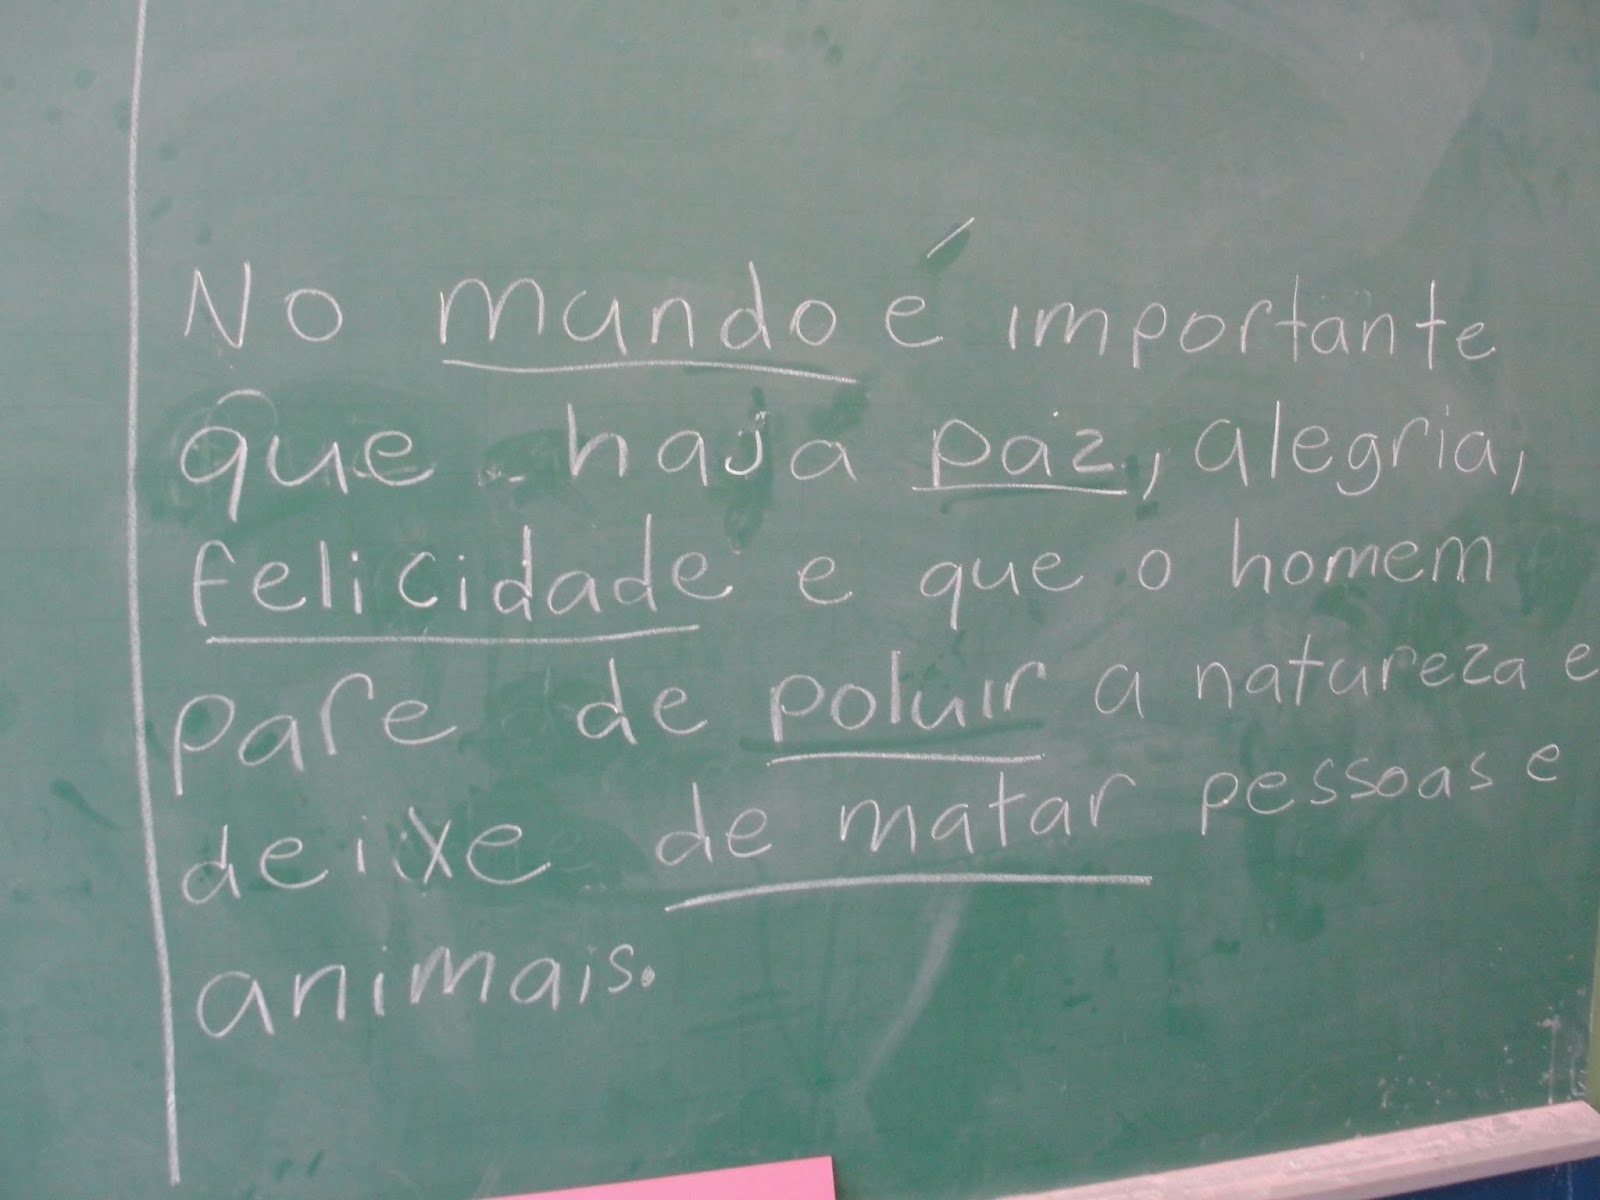 No mundo é importante
que haja paz, alegria,
felicidade e que o homem
pare de poluir a natureza e
deixe de matar pessoas e
animais.